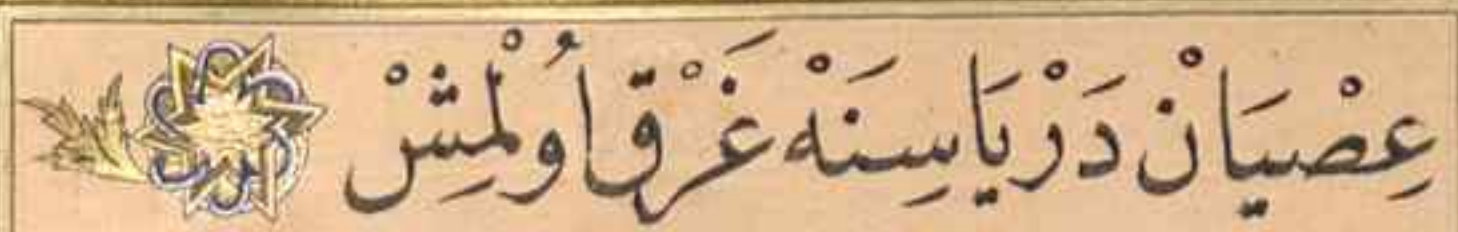 عِصْيَانْ دَرْيَاسِنَهْ غَرْق أُولْمِشْ